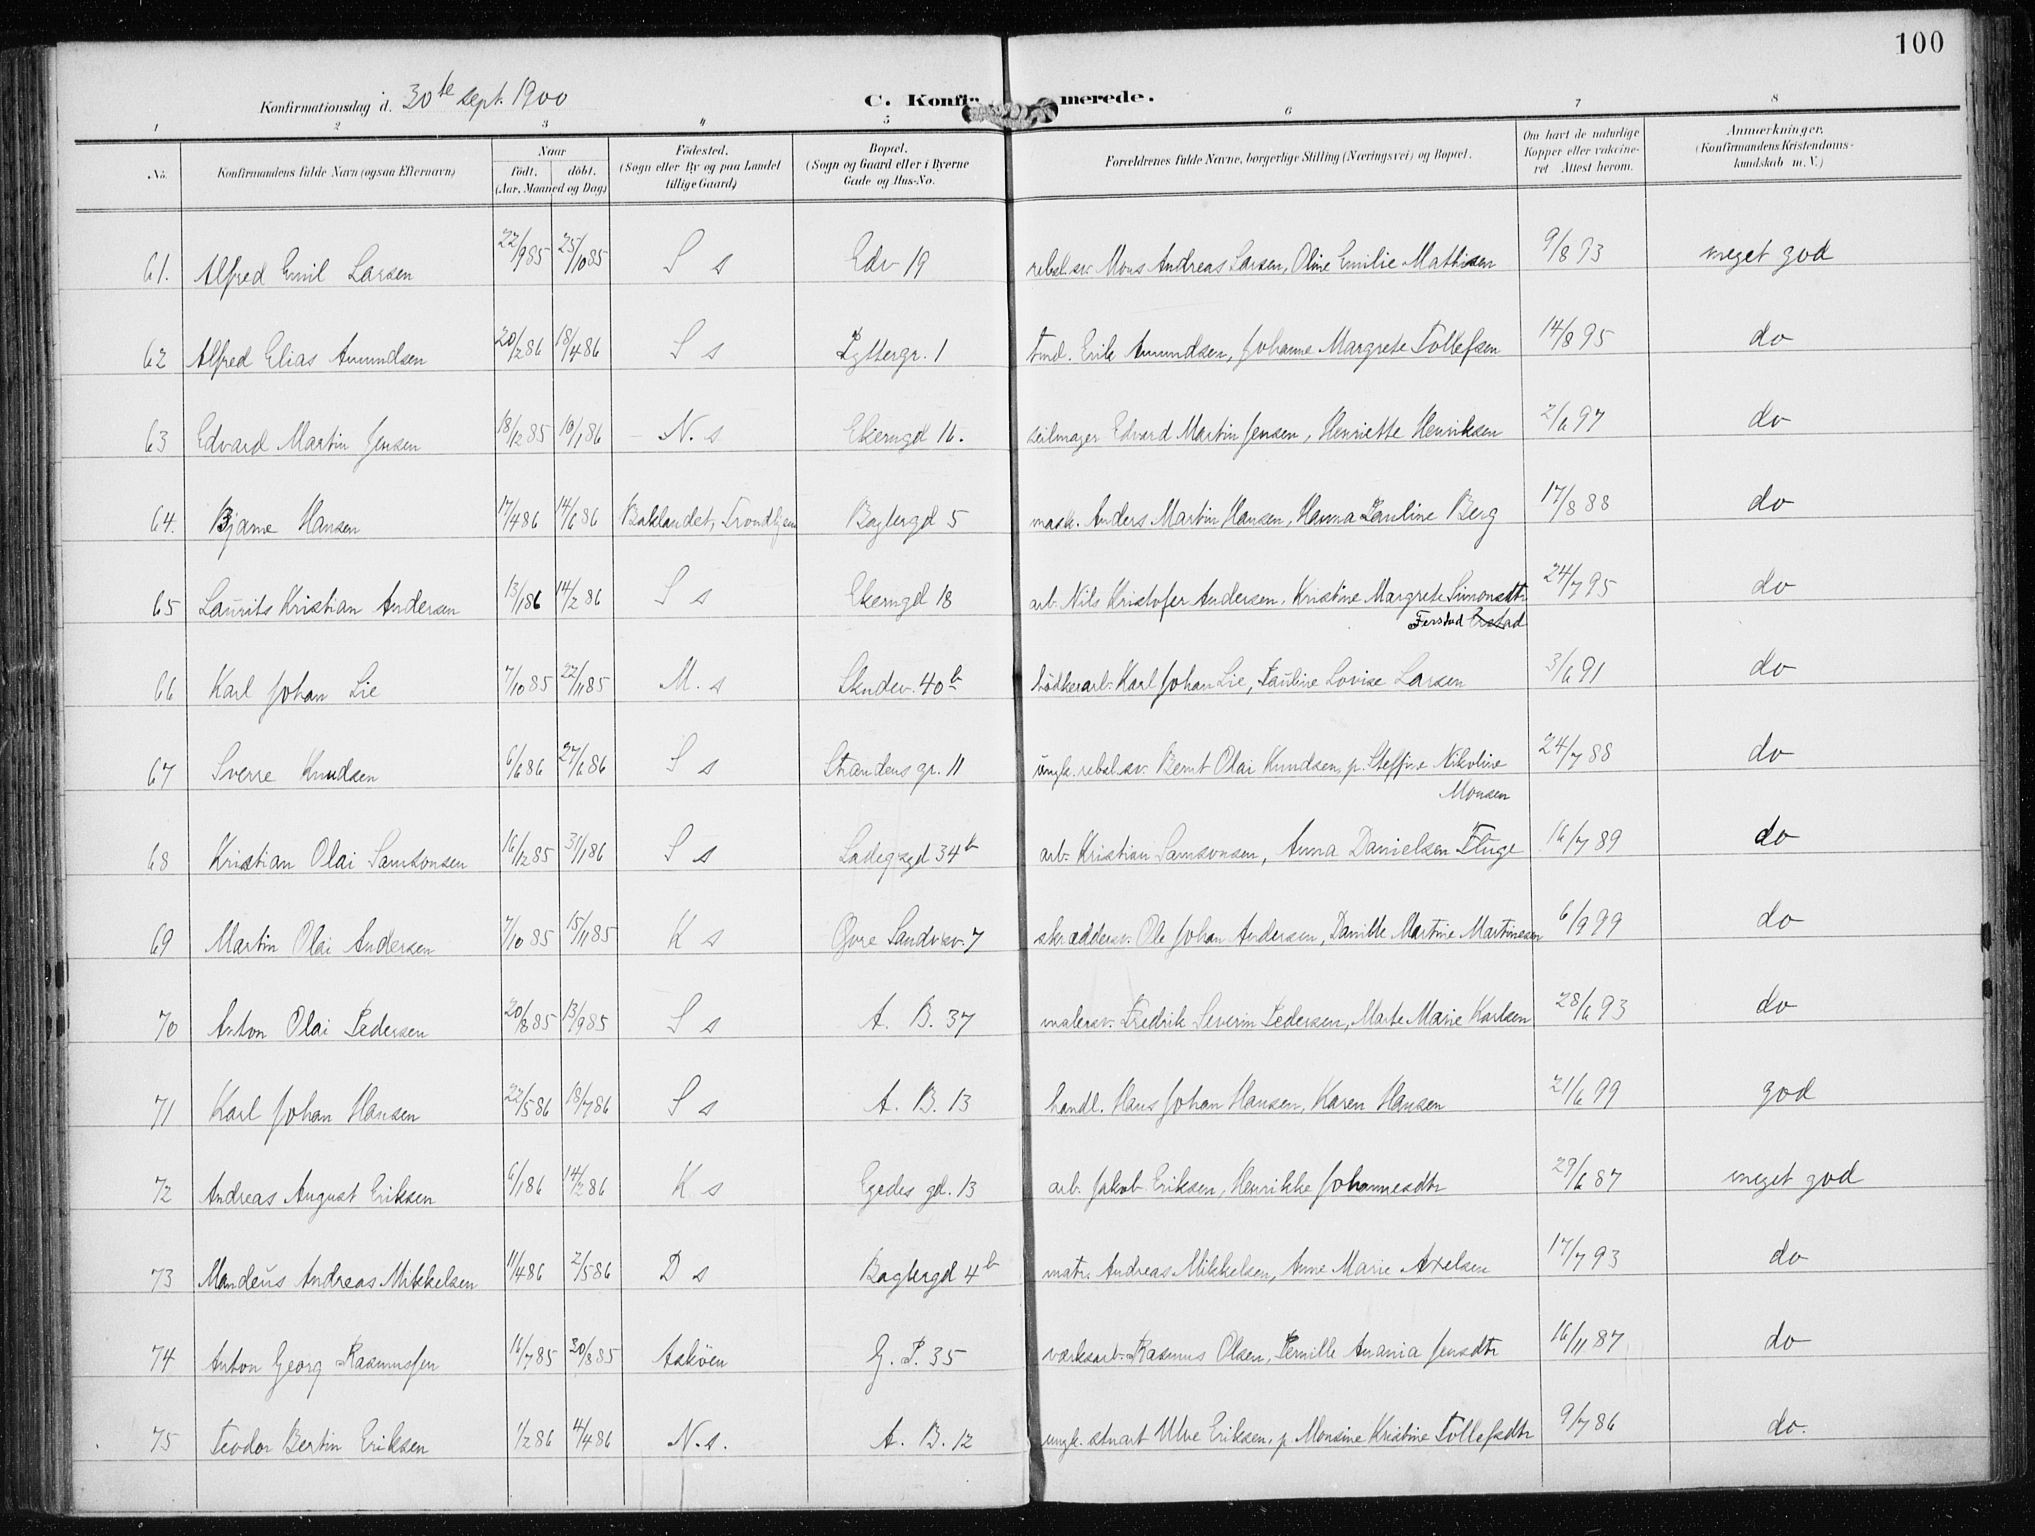 100
Konfirmationsdag d. 30te sept. 1900
C. Konfir merede.
1 2 3 4 5 6 7 8
No.
Konfirmandens fulde Navn (ogsaa Efternavn)
Naar
födt. döbt.
(Aar, Maaned og Dag)
Födested.
(Sogn eller By og paa Landet
tillige Gaard)
Bopæl.
(Sogn og Gaard eller i Byerne
Gade og Hus-No.
Forældrenes fulde Navne, borgerlige Stilling (Næringsvei) og Bopæl.
Om havt de naturlige
Kopper eller vakcine-
ret Attest herom.
Anmærkninger.
(Konfirmandens Kristendoms-
kundskab m. V.)
61. Alfred Emil Larsen 22/9 85 25/10 85 S s Edv 19 rebsl.sv. Mons Andreas Larsen, Oline Emilie Mathisen 9/8 93 meget god
62 Alfred Elias Amundsen 20/2 86 18/4 86 S s Lyttergr. 1 Erik Amundsen, Johanne Margrete Tollefsen 14/8 95 do
63 Edvard Martin Jensen 18/12 85 10/1 86 N. s Ekerngd 16. seilmager Edvard Martin Jensen, Henriette Henriksen 2/6 97 do
64. Bjarne Hansen 17/4 86 14/6 86 Baklandet, Trondhjem Baglergd 5 mask. Anders Martin Hansen, Hanna Pauline Berg 17/8 88 do
65 Laurits Kristian Andersen 13/1 86 14/2 86 S s Ekerngd 18 arb. Nils Kristofer Andersen, Kristine Margrete Simonsdtr 24/7 95 do
Ferstad
66 Karl Johan Lie 7/10 85 22/11 85 M. s Skudev. 40b bödkerarb. Karl Johan Lie, Pauline Lovise Larsen 3/6 91 do
67 Sverre Knudsen 6/6 86 27/6 86 S s Strandens gr. 11 ungk. rebsl.sv. Bernt Olai Knudsen, p. Steffine Nikoline 24/7 88 do
Monsen
68 Kristian Olai Samsonsen 16/12 85 31/1 86 S s Ladeg.sgd 34b arb. Kristian Samsonsen, Anna Danielsen Fluge 16/7 89 do
69 Martin Olai Andersen 7/10 85 15/11 85 K s Øvre Sandvsv. 7 skræddersv. Ole Johan Andersen, Danikke Martine Martinesen 6/9 99 do
70 Anton Olai Pedersen 20/8 85 13/9 85 S s A. B. 37 malersv. Fredrik Severin Pedersen, Marte Marie Karlsen 28/6 93 do
71 Karl Johan Hansen 22/5 86 18/7 86 S s A. B. 13 handl. Hans Johan Hansen, Karen Hansen 21/6 99 god
72 Andreas August Eriksen 6/1 86 14/2 86 K s Egedes gd. 13 arb. Jakob Eriksen, Henrikke Johannesdtr 29/6 87 meget god
73 Mandeus Andreas Mikkelsen 11/4 86 2/5 86 D s Baglergd 4b matr. Andreas Mikkelsen, Anne Marie Axelsen 17/7 93 do
74 Anton Georg Rasmussen 16/7 85 30/8 85 Asköen G. P. 35 værksarb. Rasmus Olsen, Pernille Anania Jensdtr 16/11 87 do
75 Teodor Bertin Eriksen 1/2 86 4/4 86 N. s. A. B. 12 ungk. stuart Ulve Eriksen, p. Monsine Kristine Tollefsdtr 9/7 86 do.